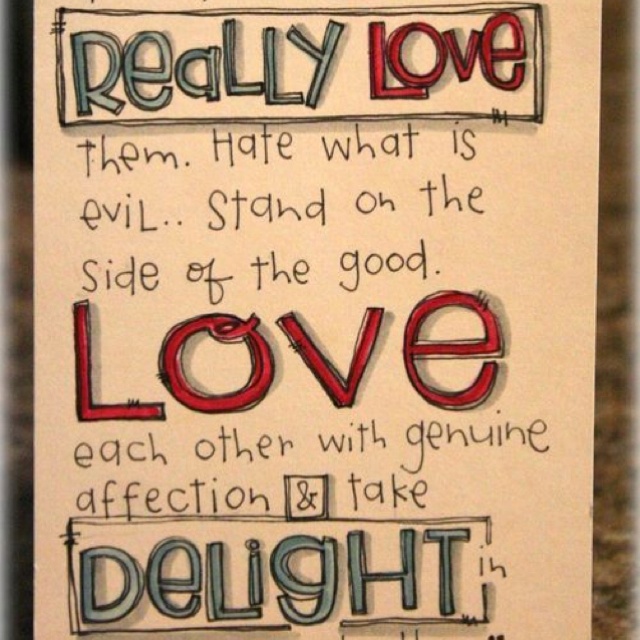 REaLLY LOVE
them. Hate what is
eviL.. Stand on the
side of the good.
LOVe
each other with genuine
affection & take
DeLiGHT in